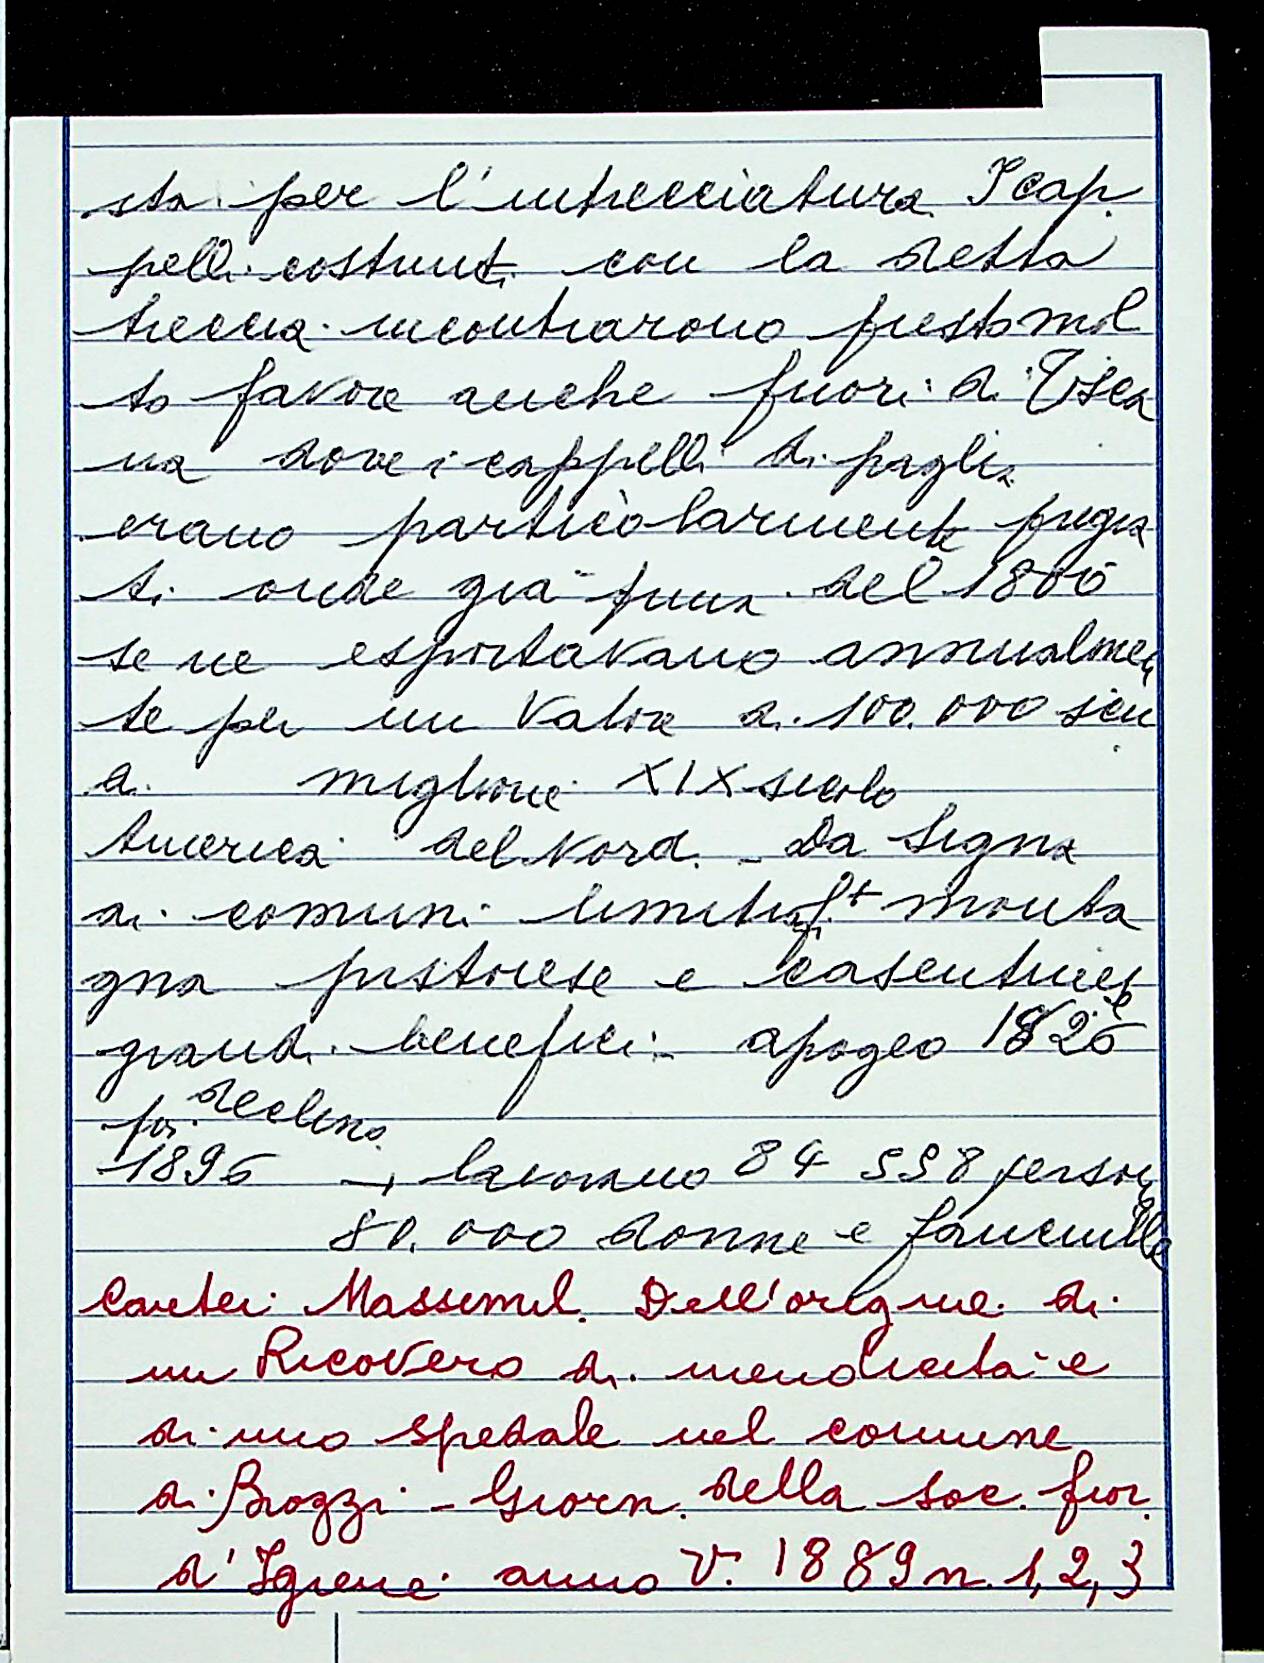 sta per l'intrecciatura I cap
pelli costruiti con la detta
treccia incontrarono presto mol
to favore anche fuori di Tosca
na dove i cappelli di paglia
erano particolarmente pregia
ti onde già prima del 1800
se ne esportavano annualmen
te per un valore di 100.000 scu
di migliore XIX secolo
America del Nord. - Da Signa
ai comuni limitrofi + monta
gna pistoiese e casentinese
grandi benefici - apogeo 1826
poi declino
1896 → lavorano 84 558 person
80.000 donne e fanciulle
Cartei Massimil. Dell'origine di
un Ricovero di mendicità e
di uno spedale nel comune
di Brozzi - Giorn. della soc. fior.
d'Igiene anno V. 1889 n. 1, 2, 3